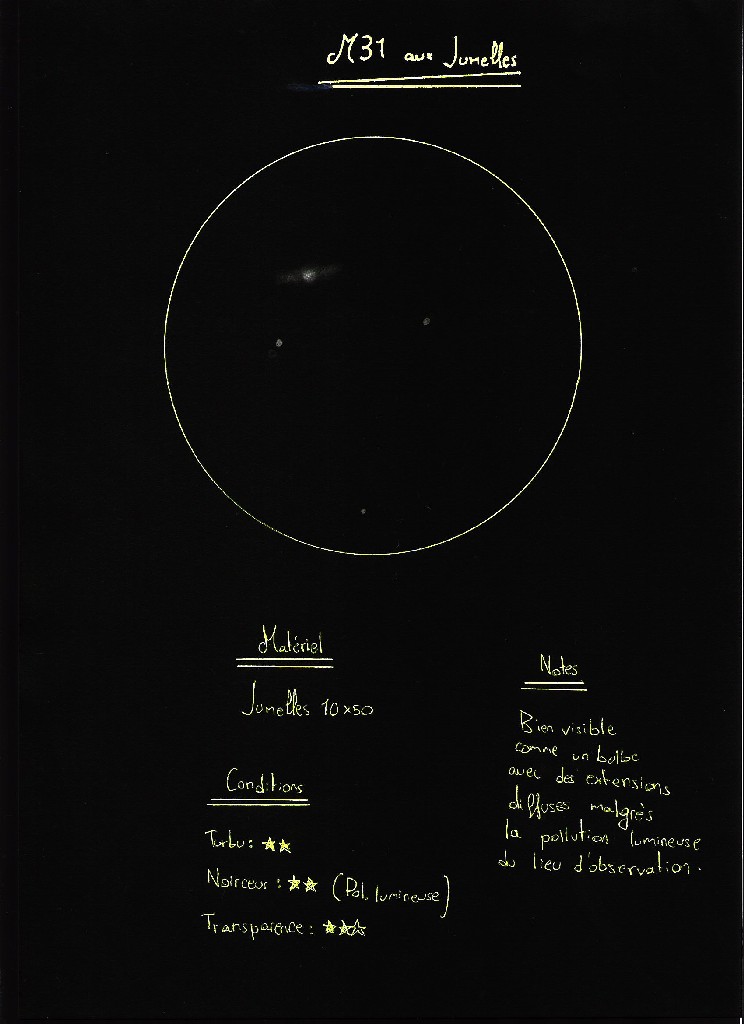 M31 aux Jumelles
Matériel
Jumelles 10x50
Conditions
Turbu: ★★
Noirceur: ★★ (Pol. lumineuse)
Transparence: ★★★
Notes
Bien visible
comme un bulbe
avec des extensions
diffuses malgrès
la pollution lumineuse
du lieu d'observation.